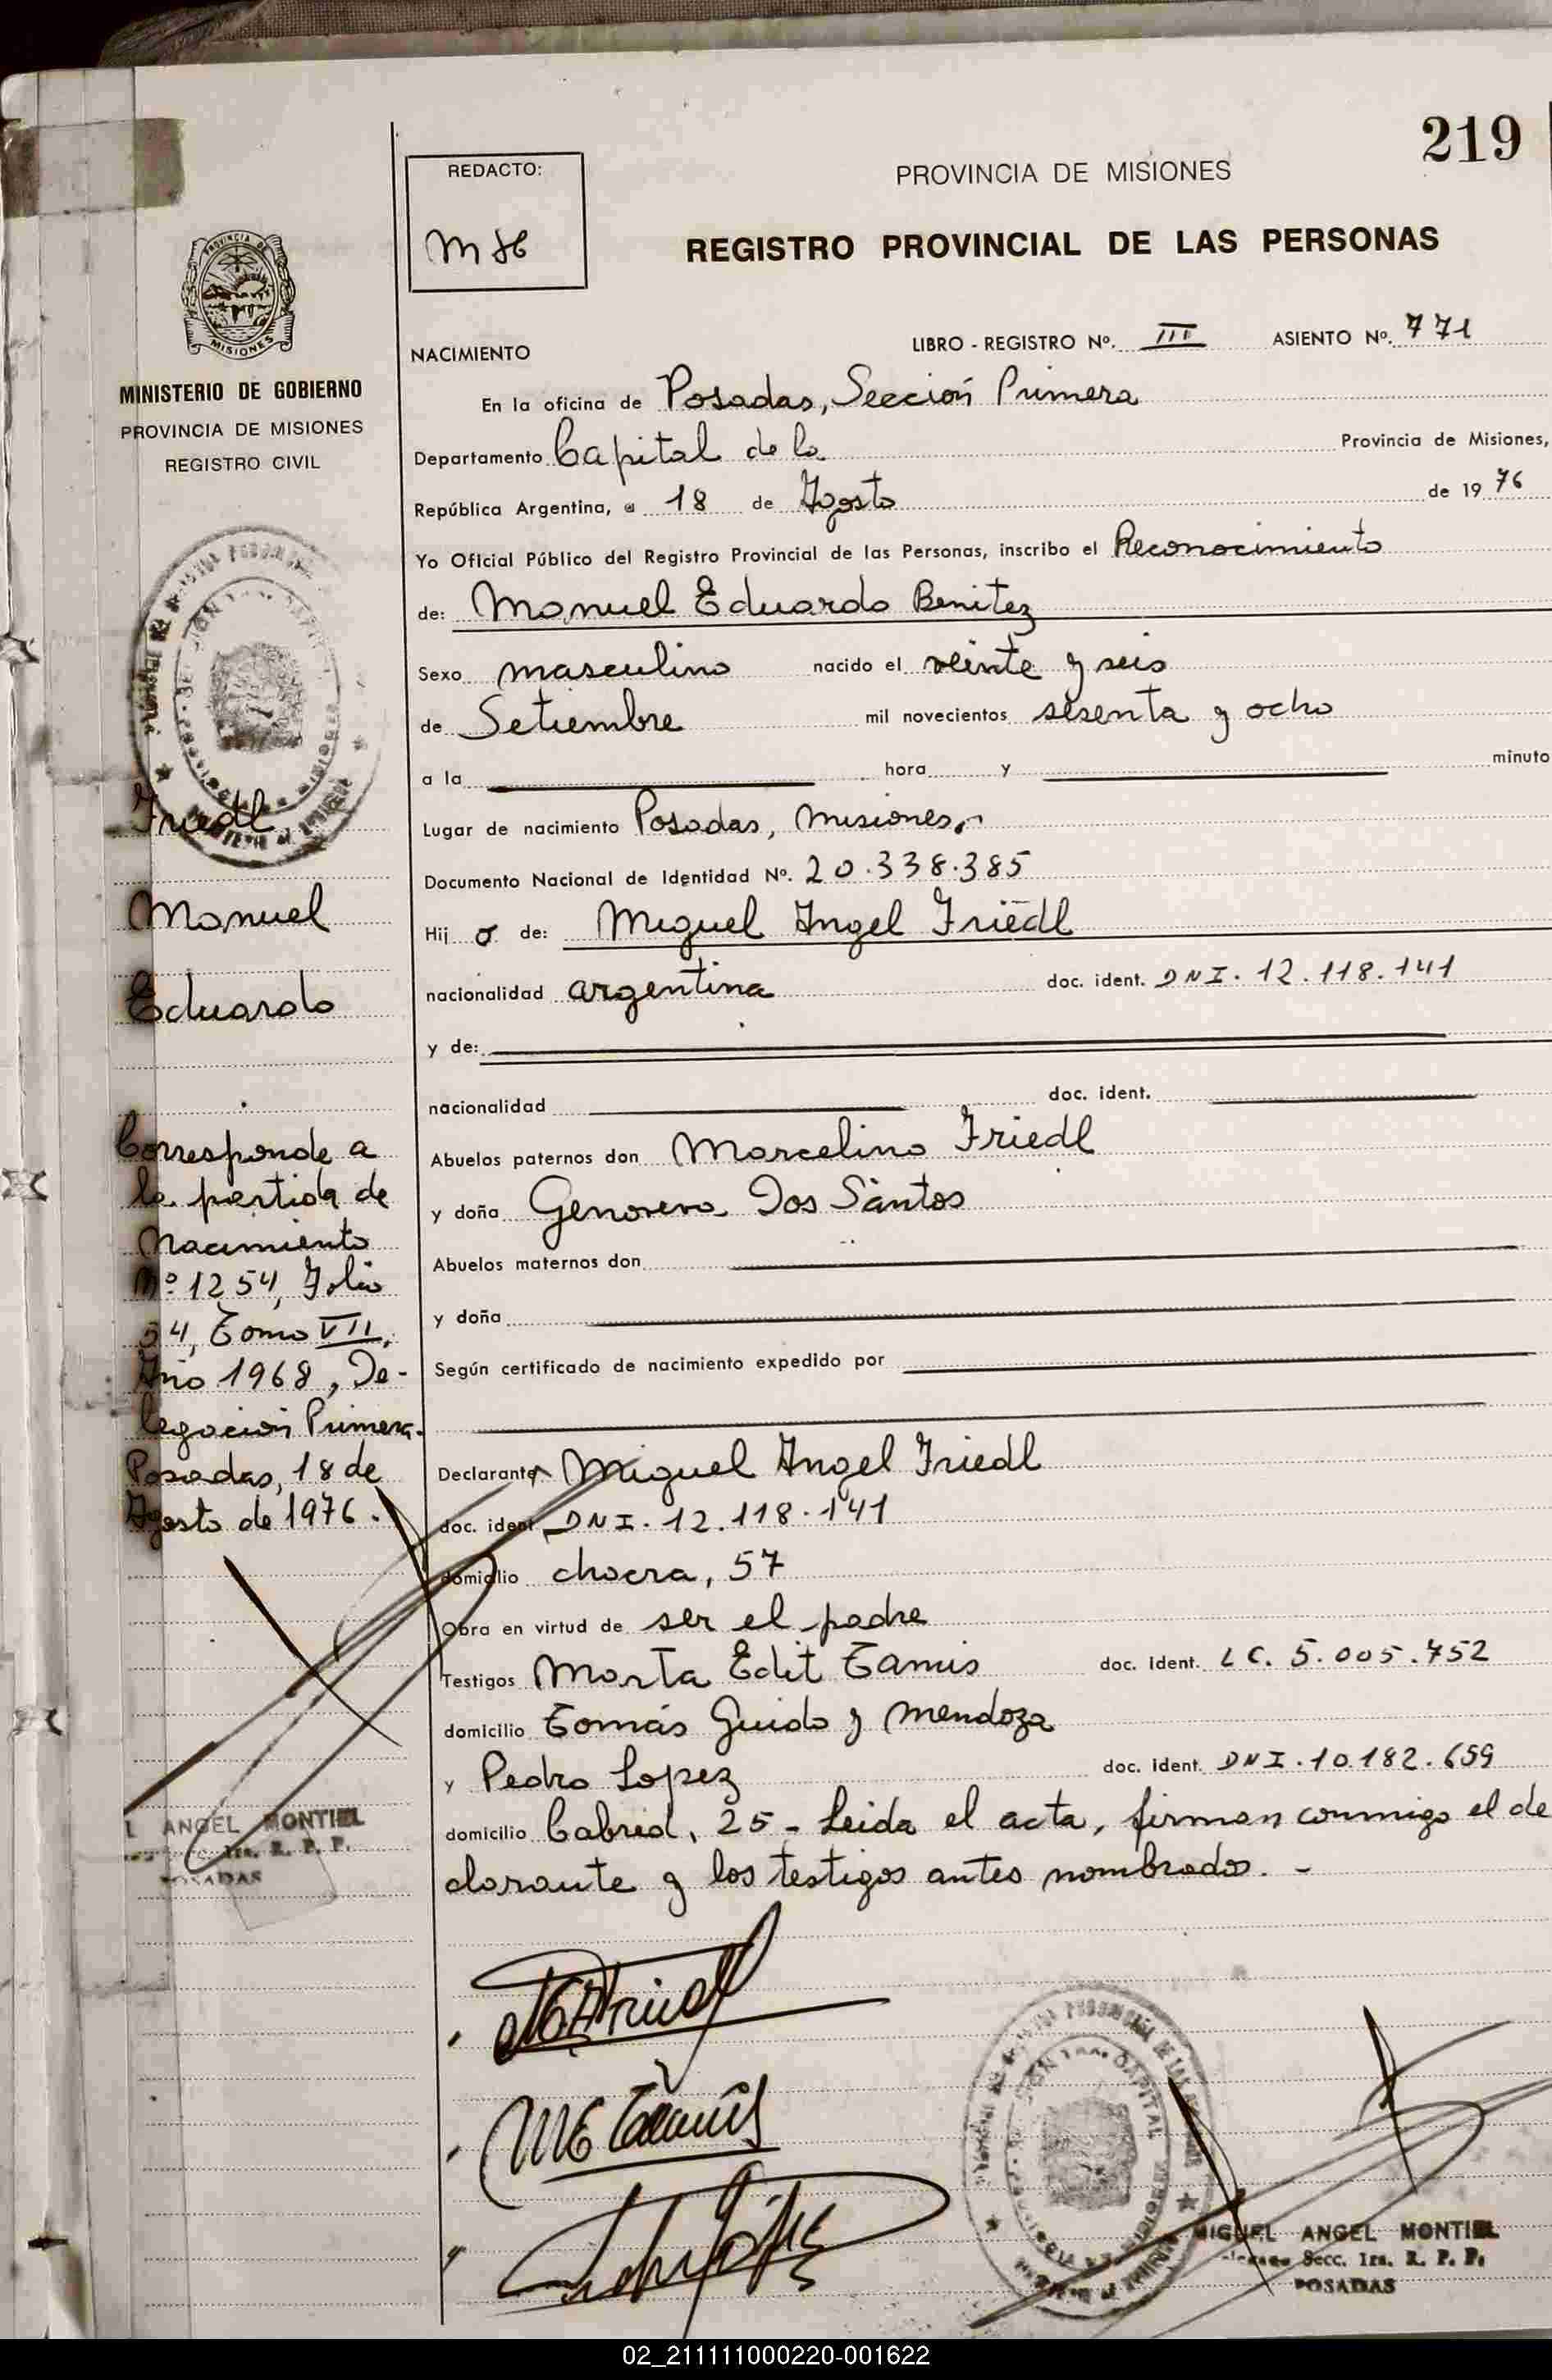 219
REDACTO:
PROVINCIA DE MISIONES
REGISTRO PROVINCIAL DE LAS PERSONAS
PROVINCIA DE
MISIONES
MINISTERIO DE GOBIERNO
PROVINCIA DE MISIONES
REGISTRO CIVIL
NACIMIENTO
LIBRO - REGISTRO Nº. III ASIENTO Nº. 771
En la oficina de Posadas, Sección Primera
Departamento Capital de la Provincia de Misiones,
República Argentina, a 18 de Agosto de 1976
Yo Oficial Público del Registro Provincial de las Personas, inscribo el Reconocimiento
de: Manuel Eduardo Benitez
Sexo masculino nacido el veinte y seis
de Setiembre mil novecientos sesenta y ocho
a la hora y minuto
Lugar de nacimiento Posadas, Misiones,
Documento Nacional de Identidad Nº. 20.338.385
Hij o de: Miguel Angel Friedl
nacionalidad argentina doc. ident. DNI. 12.118.141
y de:
nacionalidad doc. ident.
Abuelos paternos don Marcelino Friedl
y doña Genoveva Dos Santos
Abuelos maternos don
y doña
Según certificado de nacimiento expedido por
Declarante Miguel Angel Friedl
doc. ident. DNI. 12.118.141
domicilio chacra, 57
Obra en virtud de ser el padre
Testigos Marta Edit Tamis doc. ident. LC. 5.005.752
domicilio Tomás Guido y Mendoza
y Pedro Lopez doc. ident. DNI. 10.182.659
domicilio Cabred, 25 - Leida el acta, firman conmigo el de
clarante y los testigos antes nombrados. -
Friedl
Manuel
Eduardo
Corresponde a
la partida de
Nacimiento
Nº 1254, Folio
54, Tomo VII,
Año 1968, De-
legación Primera.
Posadas, 18 de
Agosto de 1976.
L ANGEL MONTIEL
1ra. R. P. P.
POSADAS
MIGUEL ANGEL MONTIEL
Secc. 1ra. R. P. P.
POSADAS
02_211111000220-001622